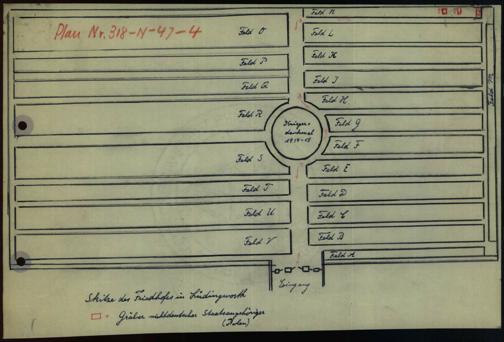 Plan Nr. 318-N-47-4
Feld O
Feld P
Feld Q
Feld R
Feld S
Feld T
Feld U
Feld V
Feld N
Feld L
Feld K
Feld J
Feld H
Feld G
Feld F
Feld E
Feld D
Feld C
Feld B
Feld A
Feld M
Krieger-
denkmal
1914-18
Eingang
Skizze des Friedhofes in Lüdingworth
= Gräber nichtdeutscher Staatsangehöriger
(Polen)